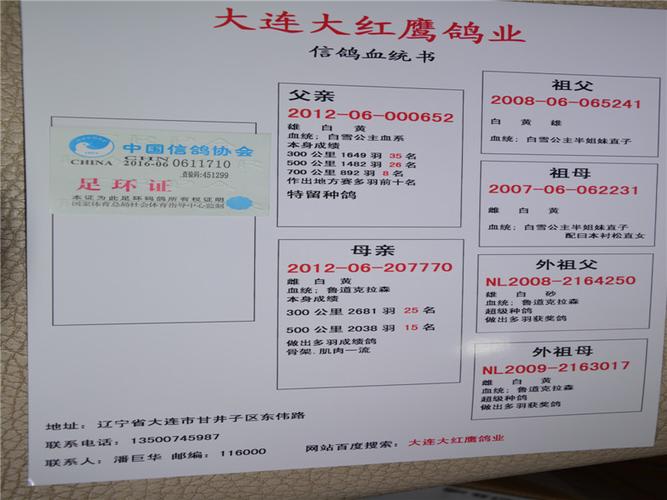 大连大红鹰鸽业
信鸽血统书
中国信鸽协会
CHINA CHN
2016-06 0611710
查验码:451299
足环证
本证为此足环码鸽所有权证明
国家体育总局社会体育指导中心监制
父亲
2012-06-000652
雄 白 黄
血统：白雪公主血系
本身成绩
300 公里 1649 羽 35 名
500 公里 1482 羽 26 名
700 公里 892 羽 8 名
作出地方赛多羽前十名
特留种鸽
母亲
2012-06-207770
雌 白 黄
血统：鲁道克拉森
本身成绩
300 公里 2681 羽 25 名
500 公里 2038 羽 15 名
做出多羽成绩鸽
骨架.肌肉一流
祖父
2008-06-065241
白 黄 雄
血统；白雪公主半姐妹直子
祖母
2007-06-062231
雌 白 黄
血统；白雪公主半姐妹直子
配日本衬松直女
外祖父
NL2008-2164250
雄 白 砂
血统：鲁道克拉森
超级种鸽
做出多羽获奖鸽
外祖母
NL2009-2163017
雌 白 黄
血统：鲁道克拉森
超级种鸽
做出多羽获奖鸽
地址：辽宁省大连市甘井子区东伟路
联系电话：13500745987
联系人：潘巨华 邮编：116000
网站百度搜索：大连大红鹰鸽业